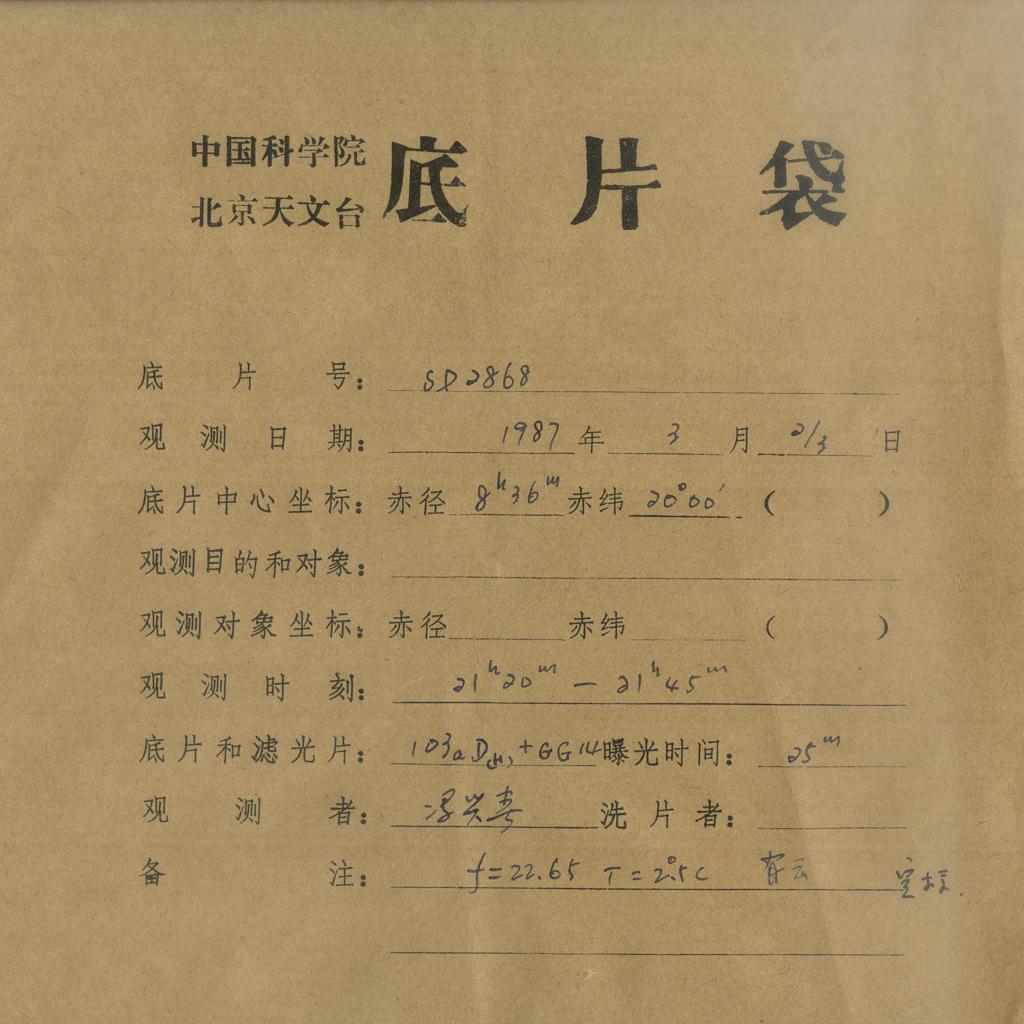 中国科学院
北京天文台
底片袋
底片号: SP2868
观测日期: 1987年3月2/3日
底片中心坐标: 赤径 8h36m 赤纬 20°00′ ( )
观测目的和对象:
观测对象坐标: 赤径 赤纬 ( )
观测时刻: 21h20m — 21h45m
底片和滤光片: 103aD + GG14 曝光时间: 25m
观测者: 洗片者:
备注: f=22.65 T=2°.5C 有云 定标.